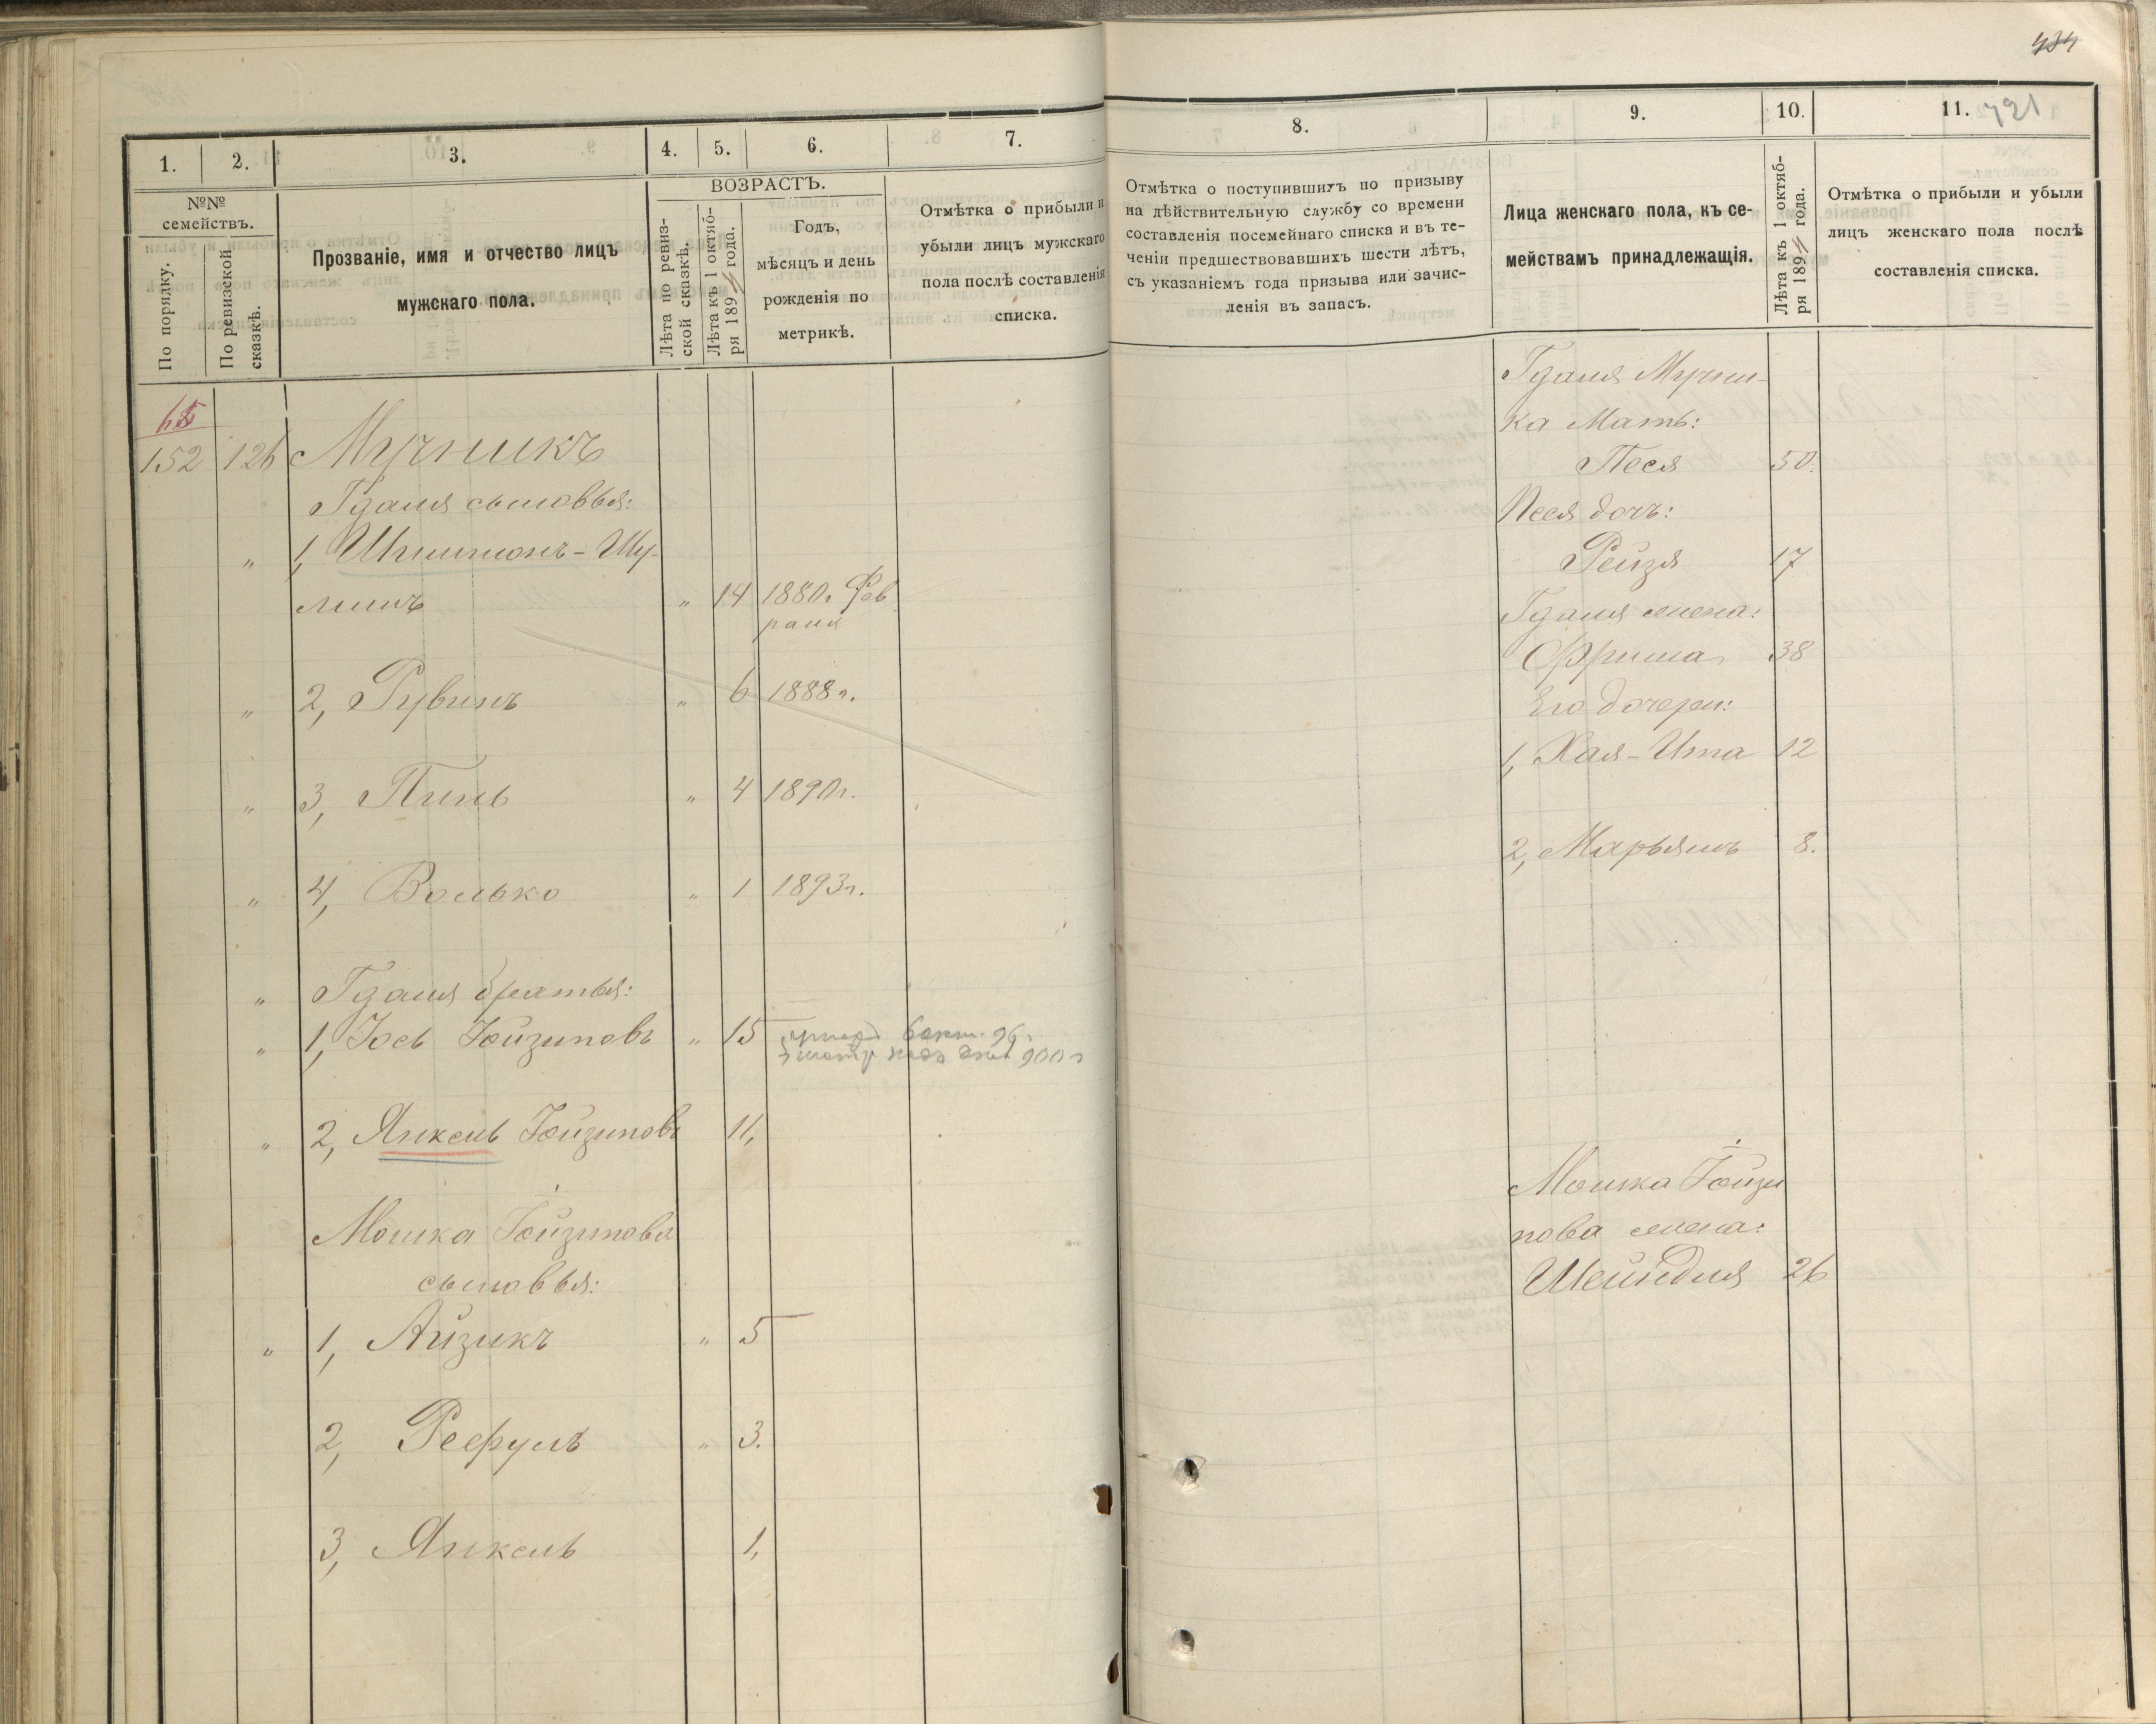 434
721
1.
2.
3.
4.
5.
6.
7.
№№
семействъ.
По порядку.
По ревизской
сказкѣ.
Прозваніе, имя и отчество лицъ
мужскаго пола.
ВОЗРАСТЪ.
Лѣта по ревиз-
ской сказкѣ.
Лѣта къ 1 октяб-
ря 1894 года.
Годъ,
мѣсяцъ и день
рожденія по
метрикѣ.
Отмѣтка о прибыли и
убыли лицъ мужскаго
пола послѣ составленія
списка.
152 126 Мучникъ
Гдаля сыновья:
" 1, Шлиомъ-Шу-
лимъ " 14 1880 г. Фев
раля
" 2, Рувинъ " 6 1888 г.
" 3, Пинь " 4 1890 г.
" 4, Волько " 1 1893 г.
" Гдаля братья:
" 1, Іось Іойзиповъ " 15
" 2, Янкель Іойзиповъ 11,
Мошка Іойзипова
сыновья:
" 1, Айзикъ " 5
2, Рефуль " 3.
3, Янкель 1,
8.
9.
10.
11.
Отмѣтка о поступившихъ по призыву
на дѣйствительную службу со времени
составленія посемейнаго списка и въ те-
ченіи предшествовавшихъ шести лѣтъ,
съ указаніемъ года призыва или зачис-
ленія въ запасъ.
Лица женскаго пола, къ се-
мействамъ принадлежащія.
Лѣта къ 1 октяб-
ря 1894 года.
Отмѣтка о прибыли и убыли
лицъ женскаго пола послѣ
составленія списка.
Гдаля Мучни-
ка Мать:
Песя 50.
Песя дочь:
Рейзя 17
Гдаля жена:
Фрима 38
Его дочери:
1, Хая-Ита 12
2, Марьямъ 8.
Мошка Іойзи
пова жена:
Шейндля 26